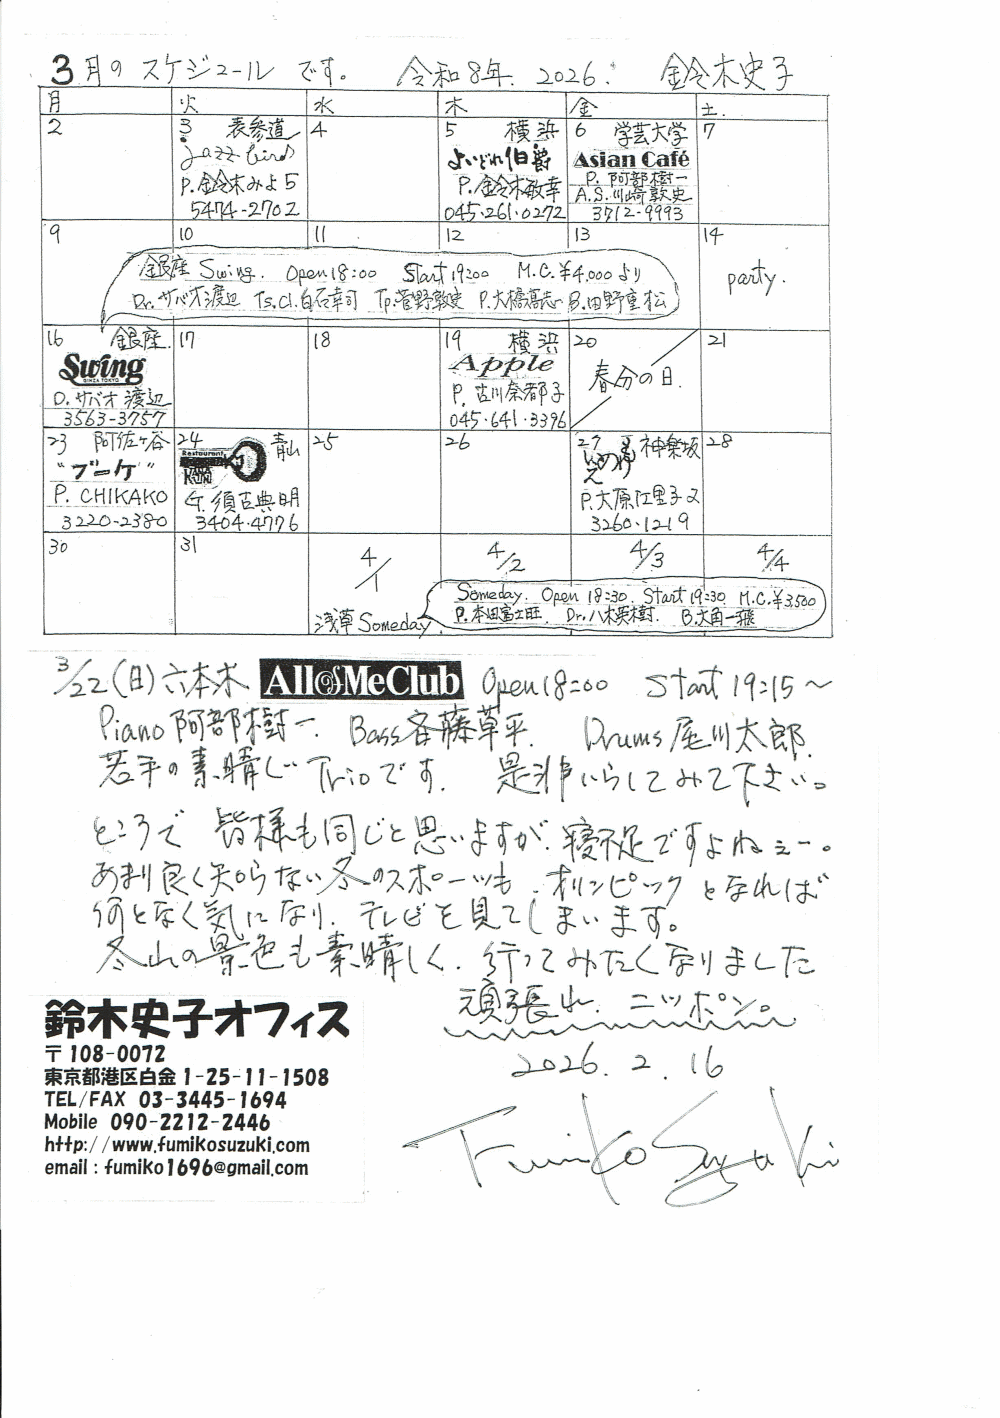 3月のスケジュールです。 令和8年. 2026. 鈴木史子
月 火 水 木 金 土
2
3 表参道
jazz bird
P.鈴木みよ5
5474-2702
4
5 横浜
よいどれ伯爵
P.鈴木敏幸
045.261.0272
6 学芸大学
Asian Café
P. 阿部樹一
A.S.川崎敦史
3712-9993
7
9
10
11
12
13
14
party.
銀座 Swing. Open 18:00 Start 19:00 M.C.¥4,000より
Dr.サバオ渡辺 Ts.Cl.白石幸司 Tp.菅野敦史 P.大橋高志 B.田野重松
16 銀座
Swing
GINZA TOKYO
D.サバオ渡辺
3563-3757
17
18
19 横浜
Apple
P. 古川奈都子
045.641.3396
20
春分の日.
21
23 阿佐ヶ谷
"ブーケ"
P. CHIKAKO
3220-2380
24 青山
Restaurant
G.須古典明
3404.4776
25
26
27 神楽坂
P.大原江里子
3260.1219
28
30
31
4/1
浅草 Someday
4/2
4/3
4/4
Someday. Open 18:30. Start 19:30. M.C.¥3,500
P.本田富士旺 Dr.八木英樹. B.大角一飛
3/22(日)六本木 All of Me Club Open 18:00 Start 19:15〜
Piano 阿部樹一. Bass 斉藤草平. Drums 尾川太郎.
若手の素晴しTrioです. 是非いらしてみて下さい。
ところで 皆様も同じと思いますが、寝不足ですよねぇー。
あまり良く知らない冬のスポーツも、オリンピックとなれば
何となく気になり、テレビを見てしまいます。
冬山の景色も素晴しく、行ってみたくなりました
頑張れ、ニッポン。
2026. 2. 16
Fumiko Suzuki
鈴木史子オフィス
〒108-0072
東京都港区白金1-25-11-1508
TEL/FAX 03-3445-1694
Mobile 090-2212-2446
http://www.fumikosuzuki.com
email : fumiko1696@gmail.com